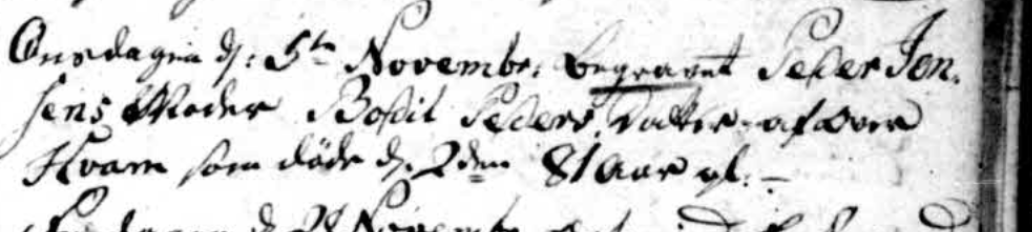 Onsdagen d: 5te November begravet Peder Jen-
sens Moder Bodil Peders Datter af Over
Hvam som døde d. 2den 81 Aar gl: -
November